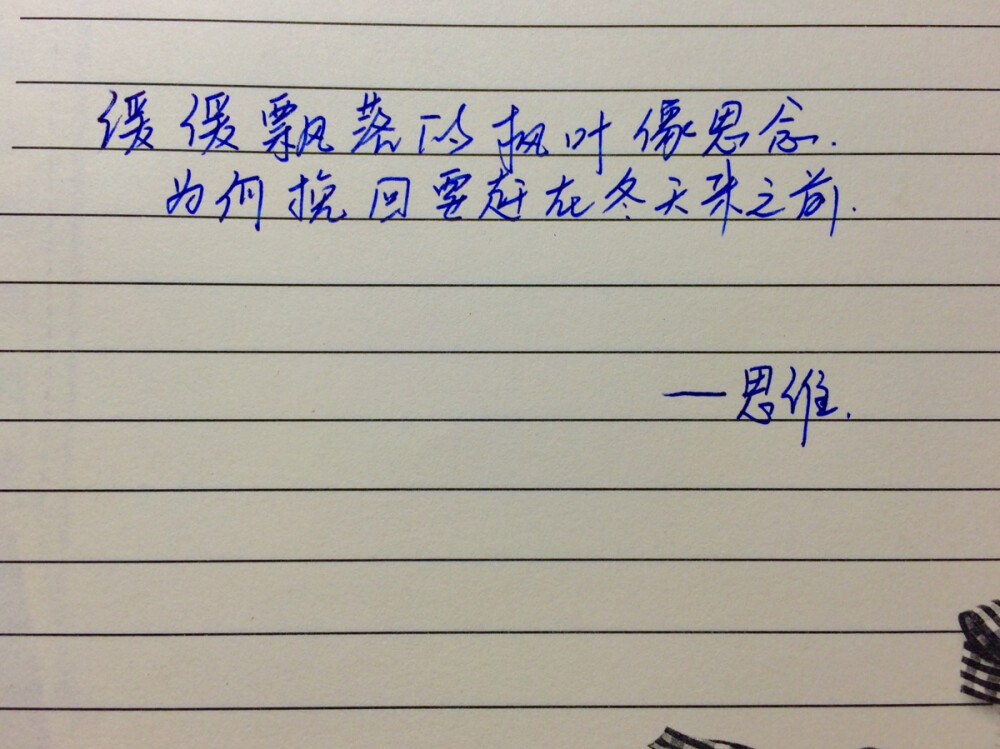 缓缓飘落的枫叶像思念.
为何挽回要赶在冬天来之前.
—思维.